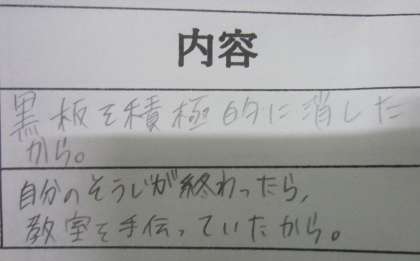 内容
黒板を積極的に消した
から。
自分のそうじが終わったら,
教室を手伝っていたから。